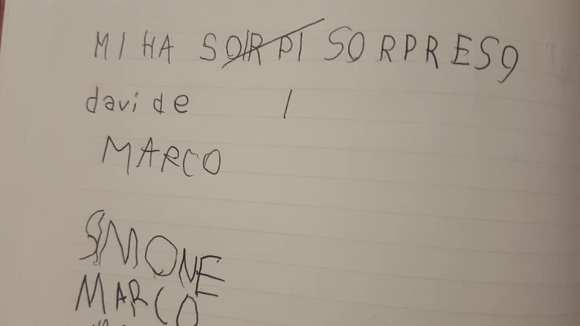 MI HA SORPI SORPRESO
davide I
MARCO
SIMONE
MARCO